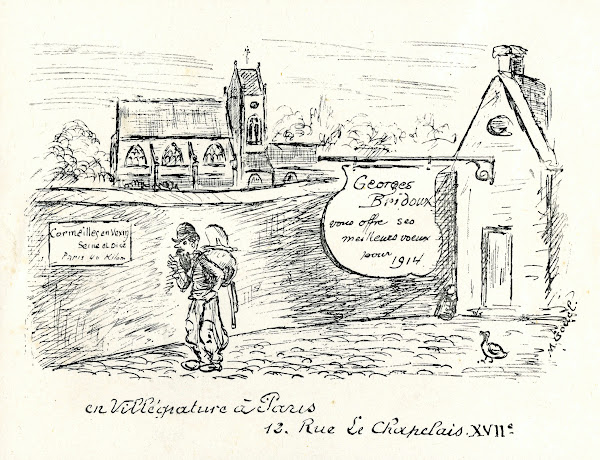 Georges
Bridoux
vous offre ses
meilleurs voeux
pour
1914
Cormeilles en Vexin
Seine et Oise
Paris 40 Kilom
en Villégiature à Paris
12. Rue Le Chapelais. XVIIe